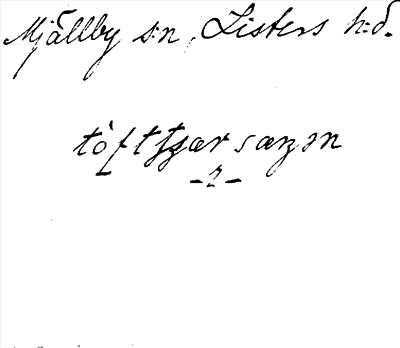 Mjällby s:n, Listers h:d.
tòftʈʂærsæŋən
-2-